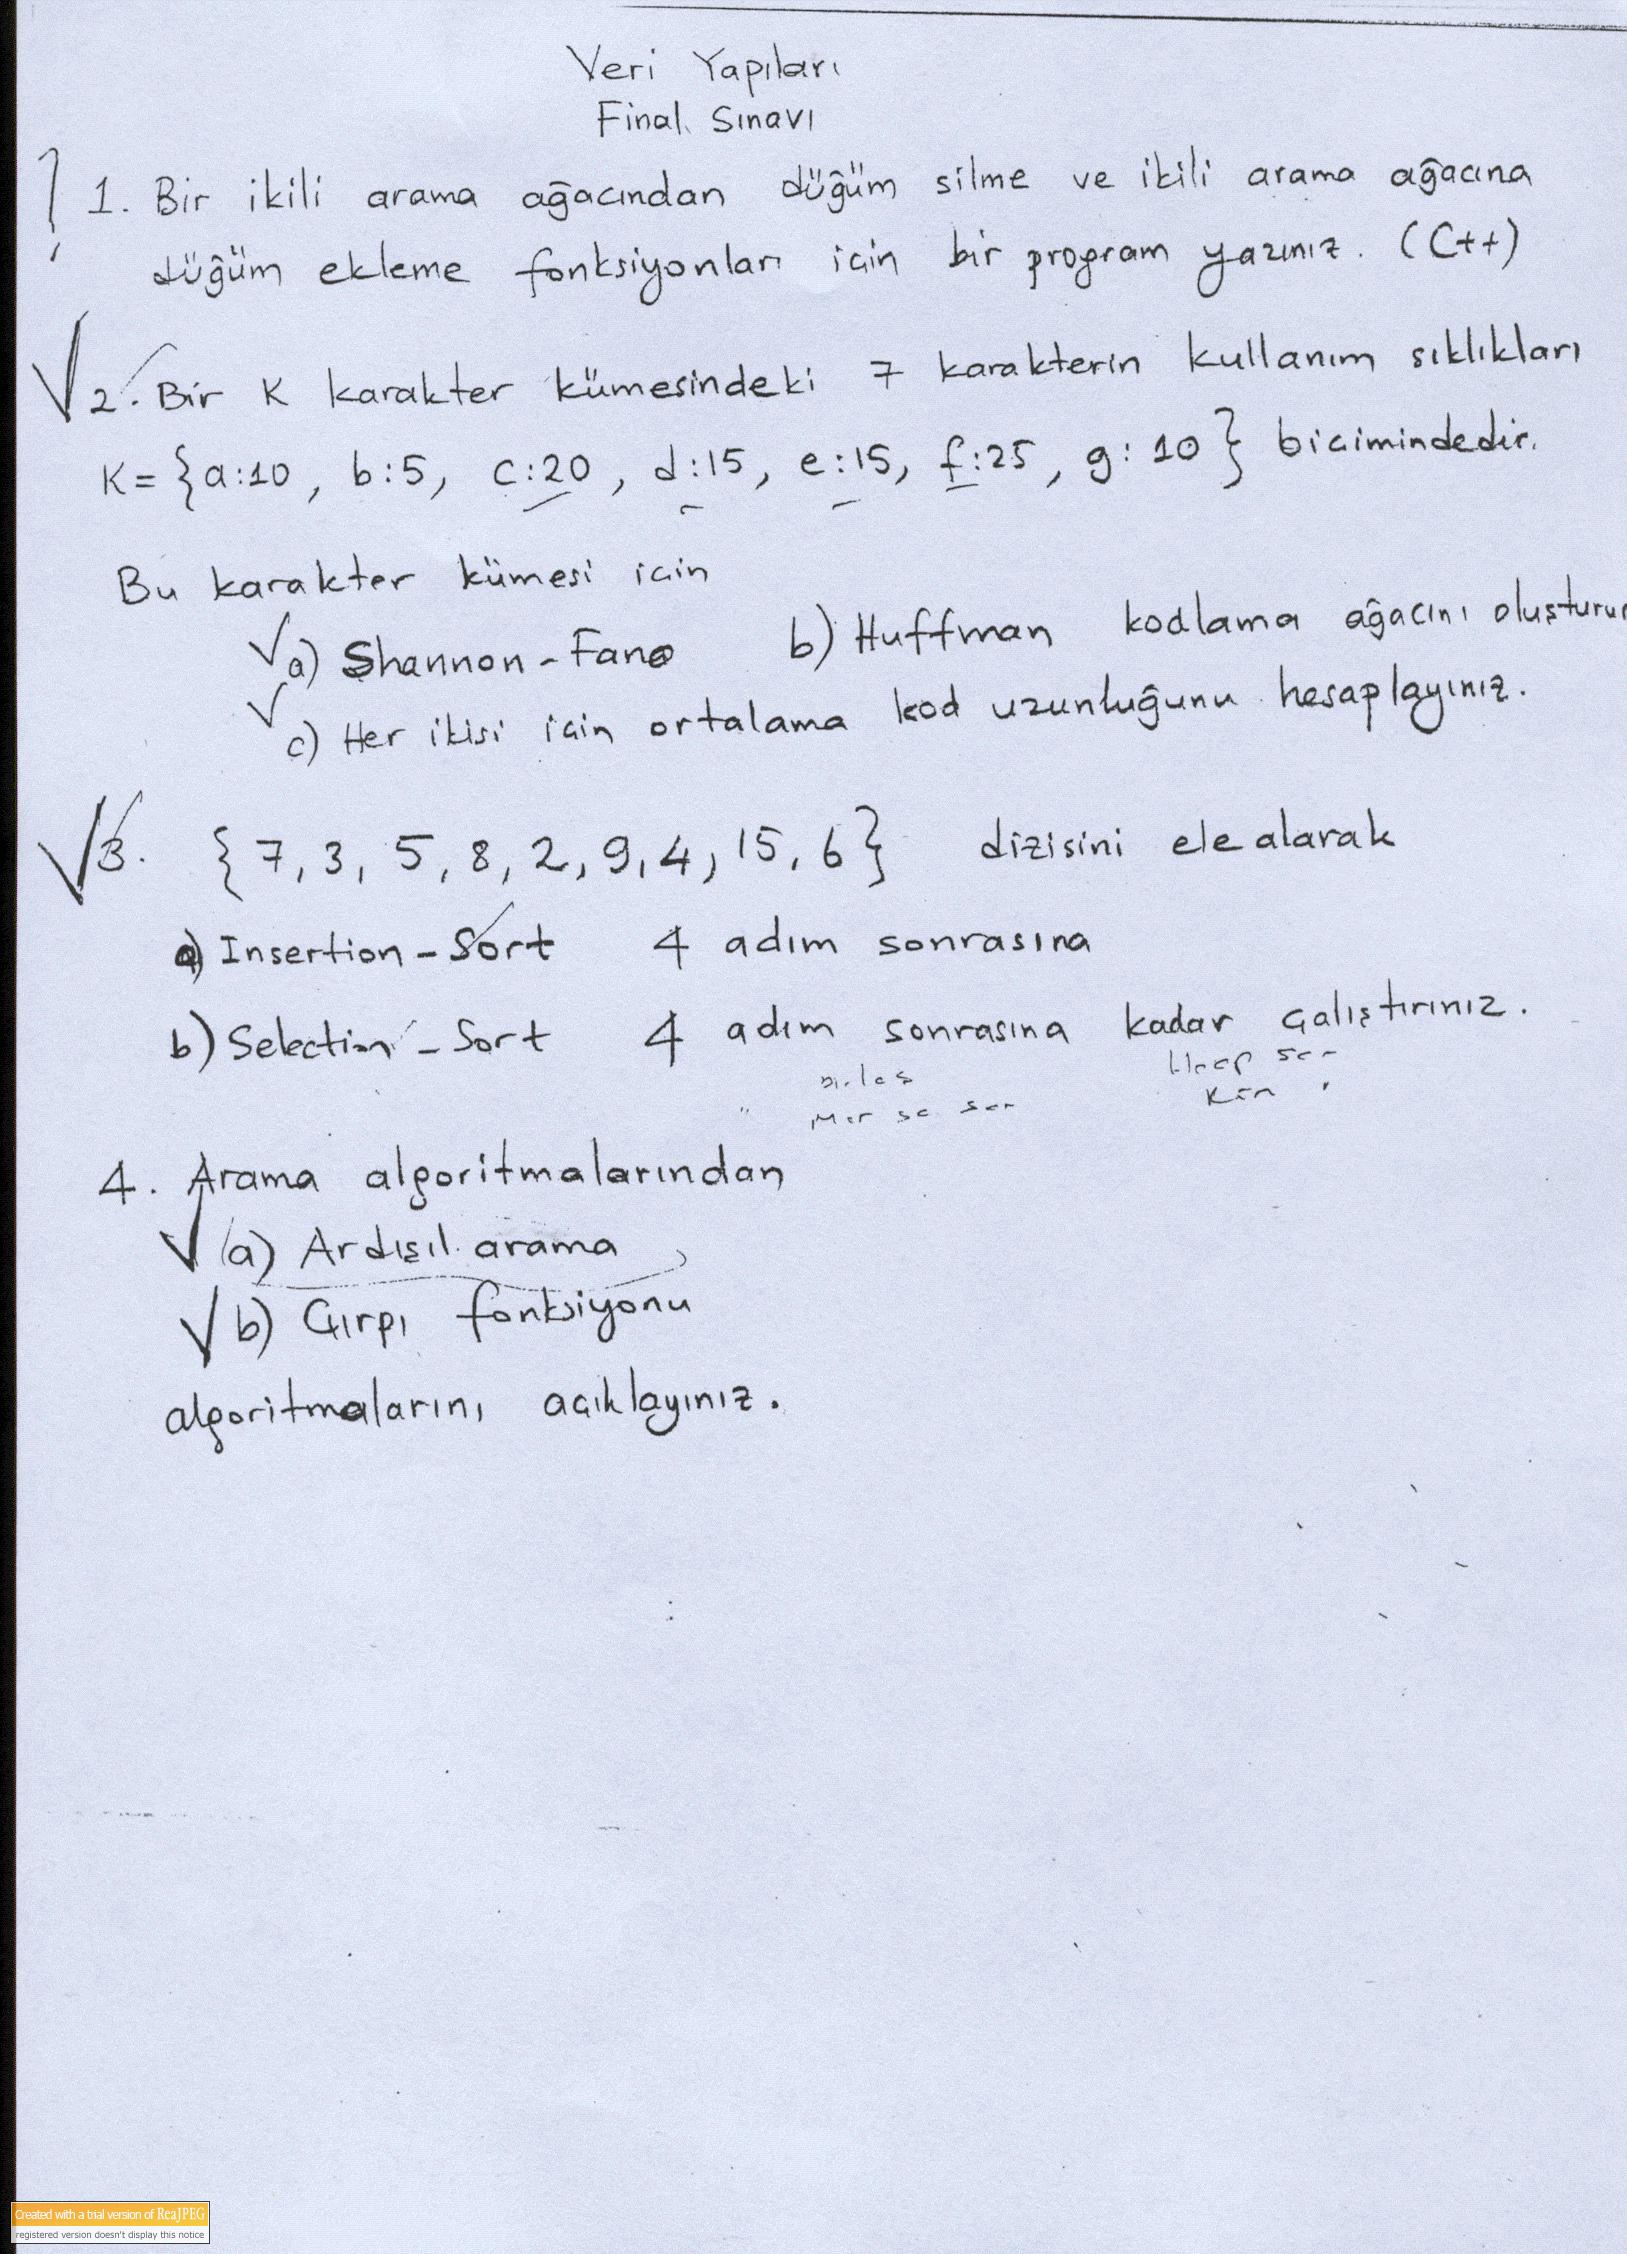 Veri Yapıları
Final Sınavı
1. Bir ikili arama ağacından düğüm silme ve ikili arama ağacına
düğüm ekleme fonksiyonları için bir program yazınız. (C++)
2. Bir K karakter kümesindeki 7 karakterin kullanım sıklıkları
K = {a:10, b:5, c:20, d:15, e:15, f:25, g:10} biçimindedir.
Bu karakter kümesi için
a) Shannon-Fano b) Huffman kodlama ağacını oluşturun
c) Her ikisi için ortalama kod uzunluğunu hesaplayınız.
3. {7, 3, 5, 8, 2, 9, 4, 15, 6} dizisini ele alarak
a) Insertion-Sort 4 adım sonrasına
b) Selection-Sort 4 adım sonrasına kadar çalıştırınız.
4. Arama algoritmalarından
a) Ardışıl arama
b) Çırpı fonksiyonu
algoritmalarını açıklayınız.
Created with a trial version of ReaJPEG
registered version doesn't display this notice